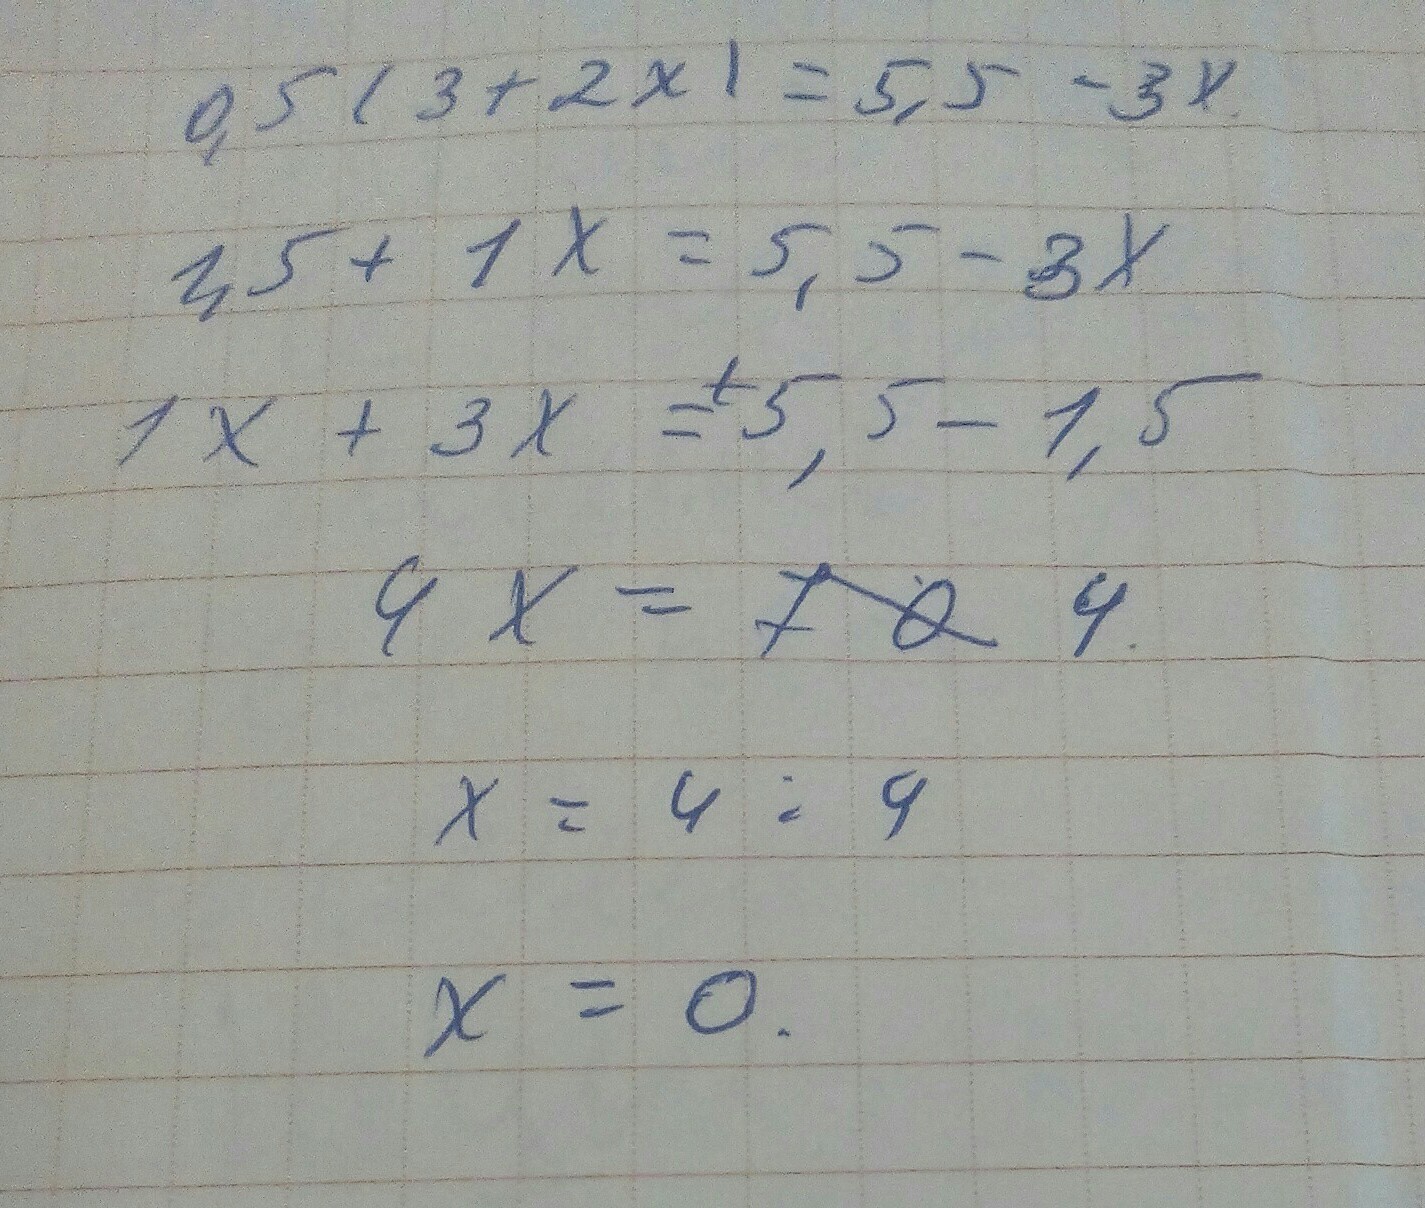 0,5(3+2x) = 5,5 - 3x
1,5 + 1x = 5,5 - 3x
1x + 3x = +5,5 - 1,5
4x = 70 4.
x = 4 : 4
x = 0.